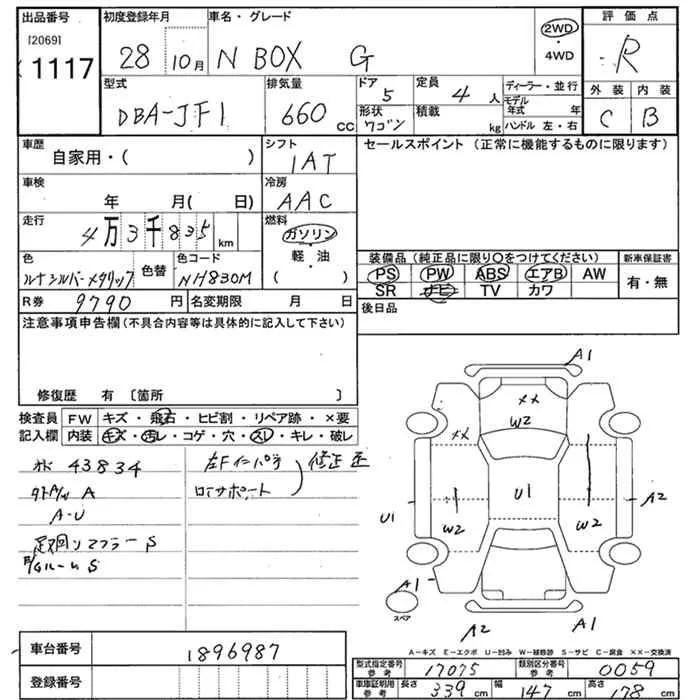 出品番号 初度登録年月 車名・グレード 評価点
[2069] 1117 28 10月 N BOX G 2WD・4WD R
型式 排気量 ドア 定員 ディーラー・並行 外装 内装
DBA-JF1 660cc 5 4人 モデル年式 年 C B
形状 ワゴン 積載 kg ハンドル 左・右
車歴 シフト セールスポイント (正常に機能するものに限ります)
自家用・( ) IAT
車検 冷房
年 月( 日) AAC
走行 燃料
4万3千835km ガソリン・軽油・( )
色 色替 色コード 装備品 (純正品に限り○をつけてください) 新車保証書
ルナシルバーメタリック NH830M PS PW ABS エアB AW 有・無
SR ナビ TV カワ
R券 9790円 名変期限 月 日 後日品
注意事項申告欄(不具合内容等は具体的に記入して下さい)
修復歴 有 〔箇所 〕
検査員 FW キズ・飛石・ヒビ割・リペア跡・×要
記入欄 内装 キズ・汚レ・コゲ・穴・スレ・キレ・破レ
43834 左Fインパネ 修正 歪
A
A-U
足廻リマフラーS
S
A1
××
W2
××
U1
A2
W2
W2
U1
A1
スペア
A2
A1
A-キズ E-エクボ U-凹み W-補修跡 S-サビ C-腐食 ××-交換済
車台番号 1896987
登録番号
型式指定番号参考 17075 類別区分番号参考 0059
車庫証明用参考 長さ 339cm 幅 147cm 高さ 178cm